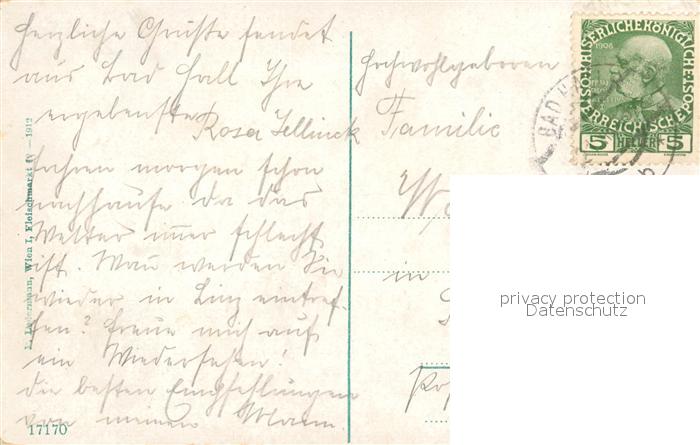 Herzliche Grüße sendet
aus Bad Hall Ihre
ergebenste
Rosa Jellinek
fahren morgen schon
nachhause da das
Wetter immer schlecht
ist. Wan werden Sie
wieder in Linz eintref-
fen? Freue mich auf
ein Wiedersehen!
die besten Empfehlungen
von meinen Mann.
17170
Wien I, Fleischmarkt 1912
Hochwohlgeboren
Familie
in
KAISERLICHEKÖNIGLICHE
ÖSTERREICHISCHEPOST
1908
5 HELLER 5
BAD H
privacy protection
Datenschutz